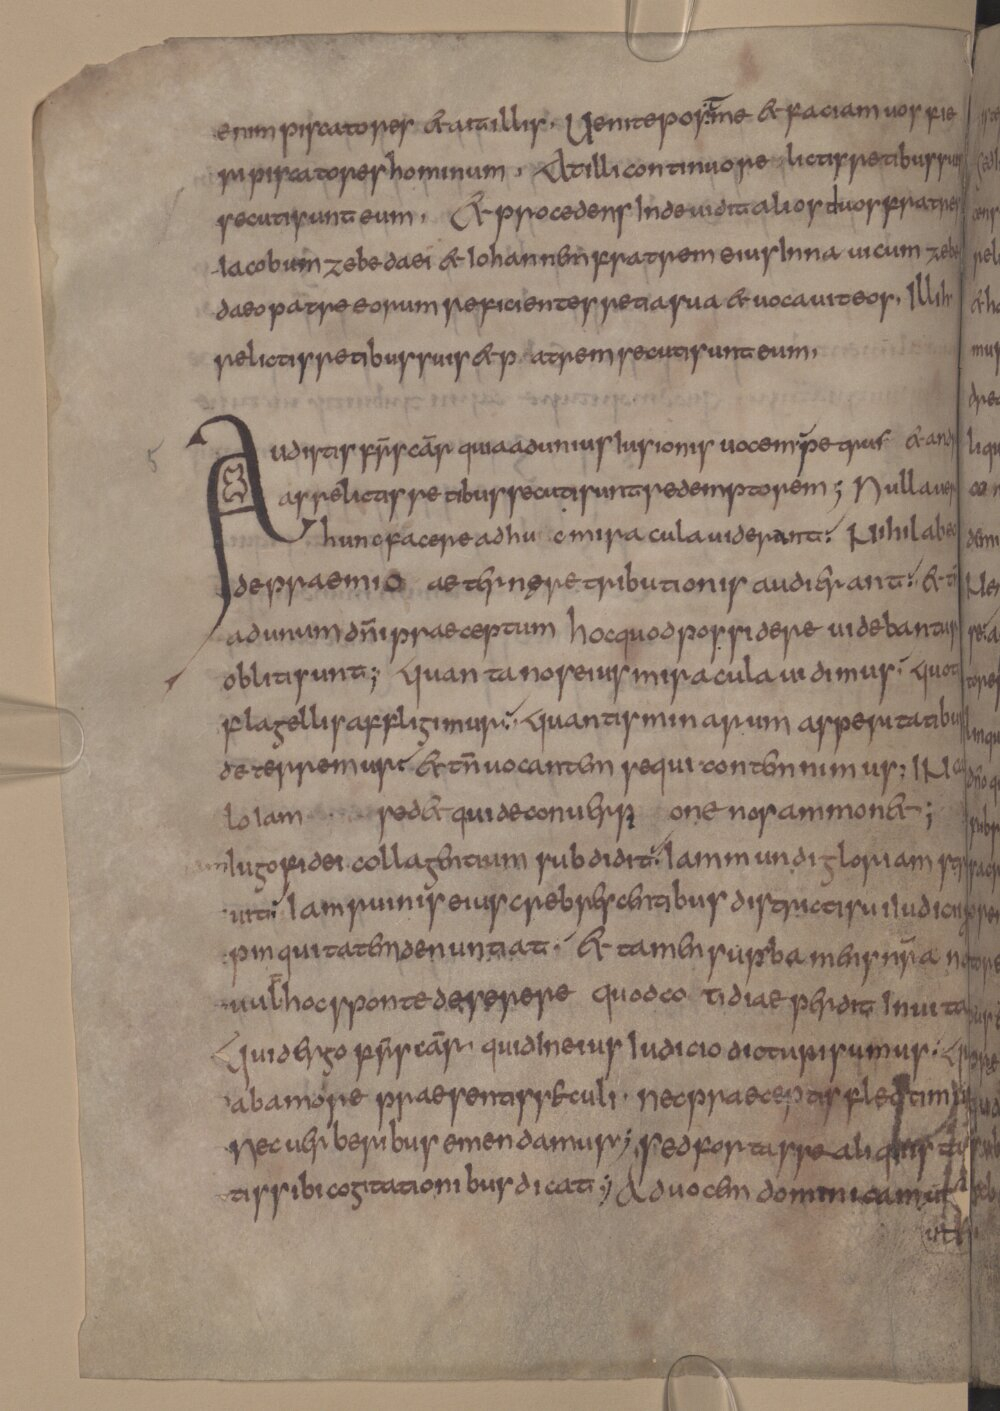 enim piscatores & ait illis. Uenite pos me & faciam uos fie
ri piscatores hominum. At illi continuo re lictis retibus suis
secuti sunt eum. Et procedens Inde uidit alios duos fratres
Iacobum zebedaei & Iohannen fratrem eius In naui cum zebe
daeo patre eorum reficientes retia sua & uocauit eos. Illi h
relictis retibus suis & p atrem secuti sunt eum.
Audistis frs car quia ad unius Iussionis uocem petrus & andre
as relictis retibus secuti sunt redemptorem; Nulla uero
hunc facere adhu c miracula uiderant. Nihil ab eo
de praemio aeternę retributionis audierant. & tn
ad unum dni praeceptum hoc quod possidere uidebantur
obliti sunt; Quanta nos eius miracula uidimus. Quot
flagellis affligimur. Quantis minarum asperitatibus
deterremur & tn uocantem sequi contemnimus;
Io Iam sed & qui de conuersi one nos ammon&;
Iugo fidei colla gentium subdidit. Iam mundi gloriam str
uit. Iam ruinis eius crebrescentibus districti sui Iudicii pro
pinquitatem denuntiat. Et tamen superba mens nra no
uult hoc sponte deserere quod co tidiae perdit Inuita
Quid ergo frs car quid In eius Iudicio dicturi sumus. Qui
ab amore praesentis seculi nec praeceptis flectimur
nec uerberibus emendamur; sed fortasse aliquis taci
tis sibi cogitationibus dicat; Ad uocem dominicam ut